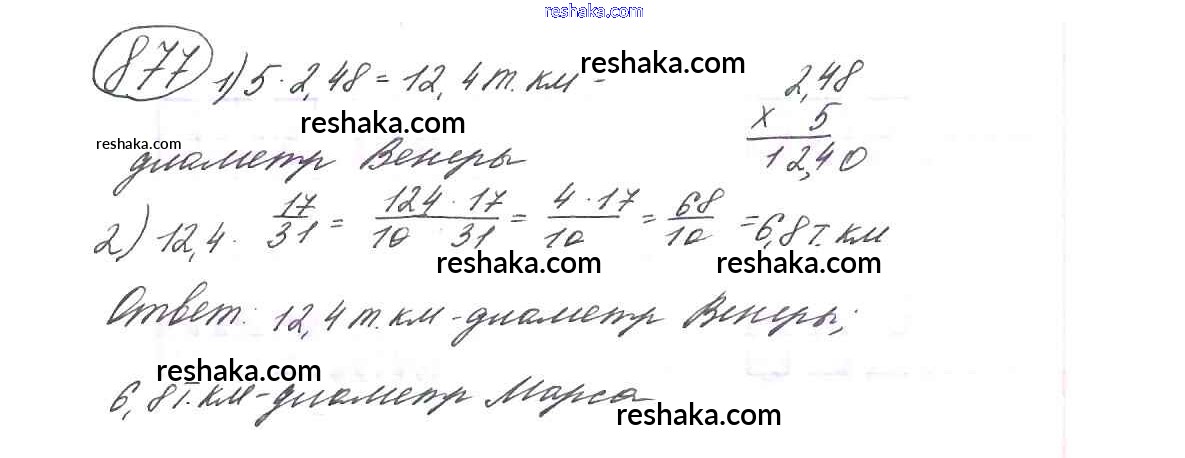 reshaka.com
877 1) 5 · 2,48 = 12,4 т. км - reshaka.com 2,48
reshaka.com × 5
reshaka.com диаметр Венеры 12,40
2) 12,4 · 17/31 = 124 · 17/10 31 = 4 · 17/10 = 68/10 = 6,8 т. км
reshaka.com reshaka.com
Ответ: 12,4 т. км - диаметр Венеры;
reshaka.com
6,8 т. км - диаметр Марса
reshaka.com